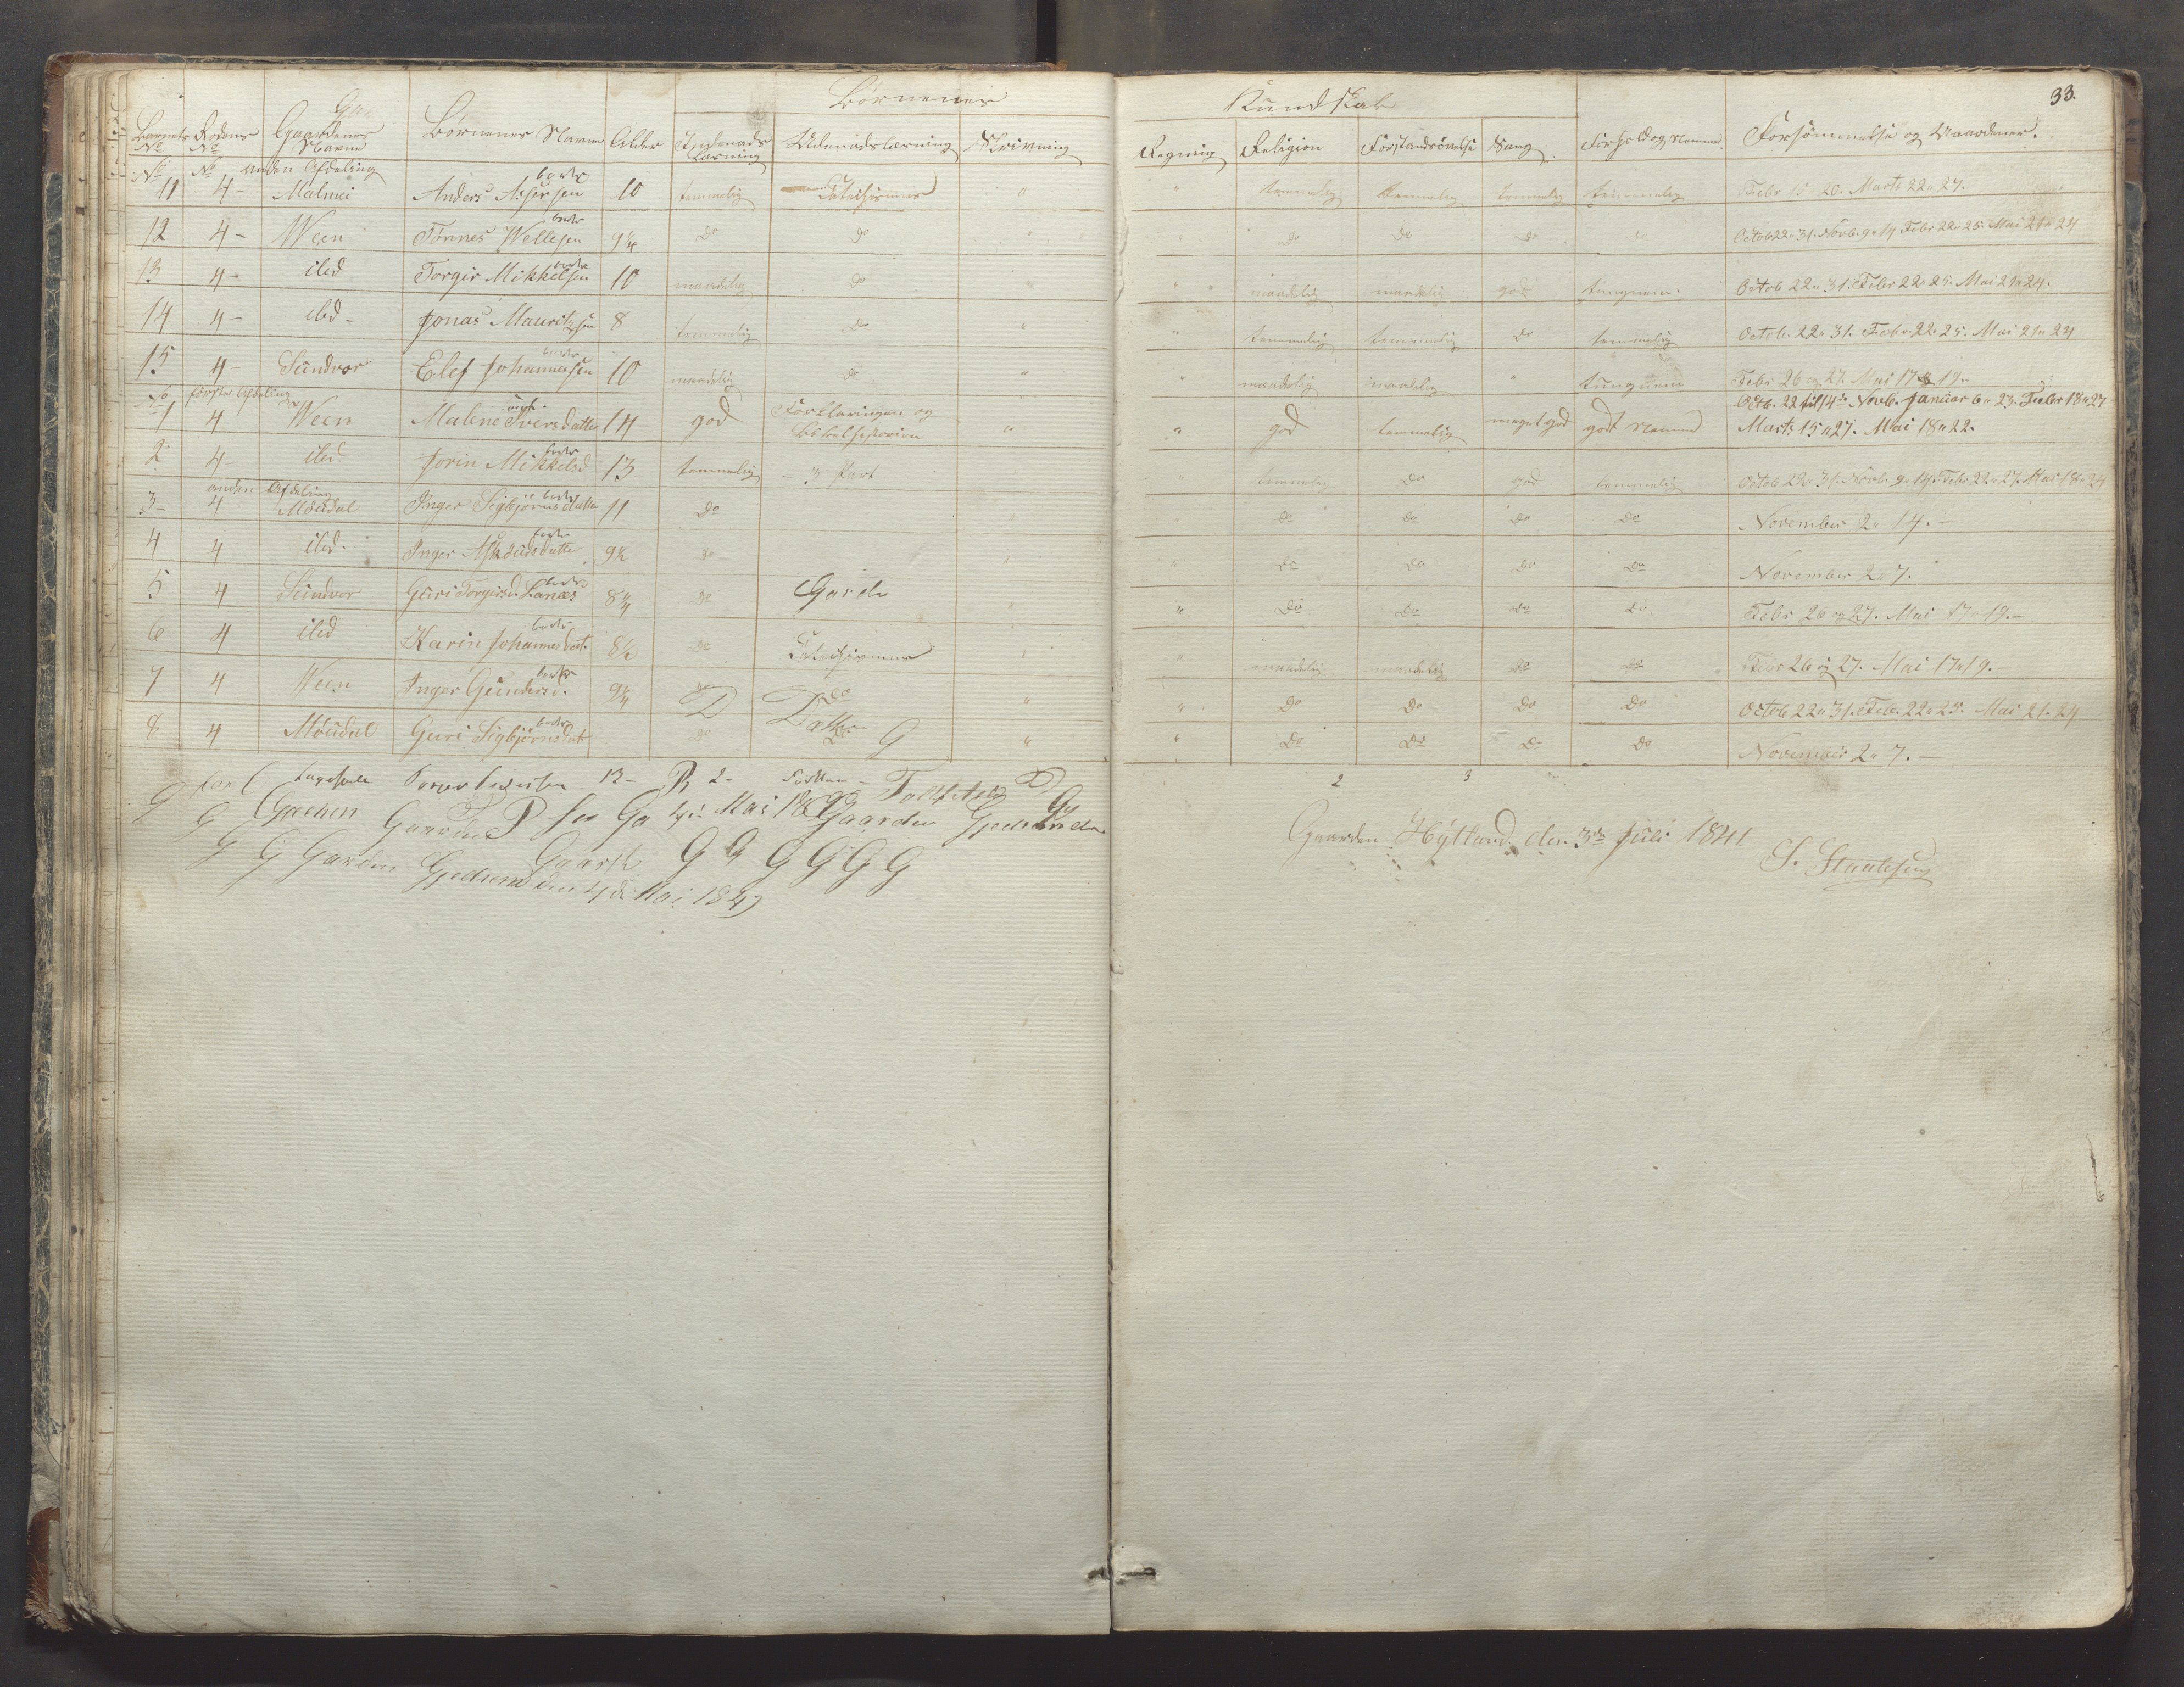 Børnenes Kundskab 33.
Barnets No Rodens No Gaardenes Navne Børnenes Navne Alder Indenads Læsning Udenadslæsning Skrivning Regning Religion Forstandsøvelse Sang Forhold og Nemme Forsømmelse og Vaardener.
No No anden Afdeling
11 4- Malmei Anders Asserssen 10 temmelig Catechismus " " temmelig temmelig temmelig temmelig Febr 15 20. Marts 22 " 27.
12 4- Ween Tønnes Wellesen 9¼ do do do do do do Octob 22 " 31. Novb. 9 " 14 Febr 22 " 25. Mai 21 " 24
13 4- ibd Torgir Mikkelsen 10 maadelig do maadelig maadelig god tungnem. Octob 22 " 31. Febr 22 " 25. Mai 21 " 24.
14 4- ibd- Jonas Mauritzsen 8 temmelig do " " temmelig temmelig do temmelig Octob. 22 " 31. Febr. 22 " 25. Mai 21 " 24
15 4- Sundvor Elef Johannessen 10 maadelig do " " maadelig maadelig " tungnem Febr 26 og 27. Mai 17 og 19.
No første Afdeling
1 4 Ween Malene Iversdatter 14 god Forklaringen og Bibelhistorien " " god temmelig meget god godt Nemme Octb. 22 til 14de Novb. Januar 6 " 23. Febr 18 " 27 Marts 15 " 27. Mai 18 " 22.
2 4- ibd. Jorin Mikkelsd 13 temmelig - 3 Part " temmelig do god temmelig Octob 22 " 31. Novb. 9 " 14. Febr 22 " 27. Mai 18 " 24
anden Afdeling
3- 4 Møudal Inger Sigbjørnsdatter 11 do do do do do November 2 " 14. -
4 4 ibd. Inger 9½ do " do do do do November 2 " 7.
5 4 Sundvor Guri Torgersd. Lanæs 8¼ do Garde " " do do do do Febr 26 og 27. Mai 17 " 19. -
6 4 ibd Karin Johannesdat. 8½ do Catechismus " maadelig maadelig do do Febr 26 og 27. Mai 17 " 19. -
7 4 Ween Inger Gundersd. 9¼ do do " " do do do do Octob 22 " 31. Feb. 22 " 25. Mai 21 " 24
8 4 Møudal Guri Sigbjørnsdat 8 do do G " " do do do do November 2 " 7. -
G G Gaarden P Ga 4de Mai Gaarden
G G Garden Gaard G G G G G G
Gjedrem den 4de Mai 1849
2 3
Gaarden Høyland. den 3de Juli 1841
S.